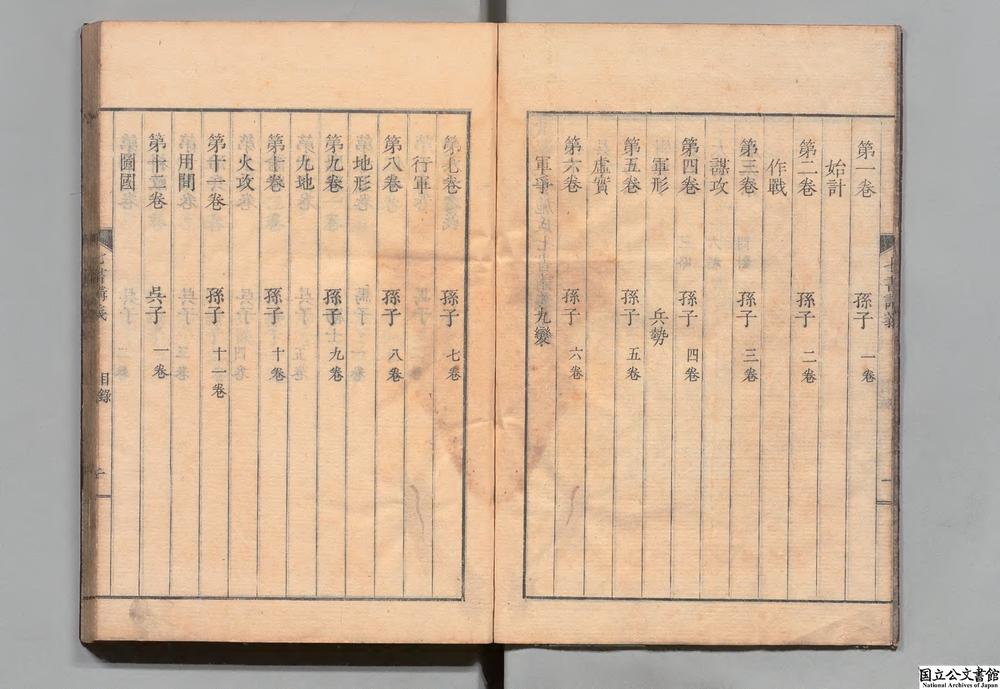 第一卷 孫子 一卷
始計
第二卷 孫子 二卷
作戰
第三卷 孫子 三卷
謀攻
第四卷 孫子 四卷
軍形 兵勢
第五卷 孫子 五卷
虛實
第六卷 孫子 六卷
軍爭 九變
第七卷 孫子 七卷
行軍
第八卷 孫子 八卷
地形
第九卷 孫子 九卷
九地
第十卷 孫子 十卷
火攻
第十一卷 孫子 十一卷
用間
第十二卷 吳子 一卷
圖國
七書講義 目錄
国立公文書館
National Archives of Japan